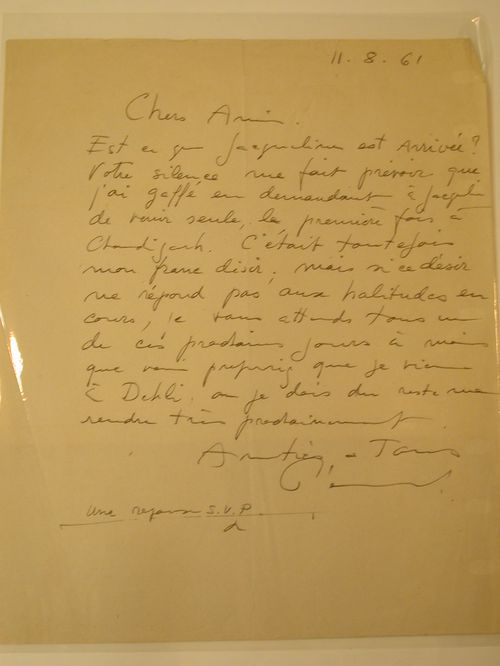 11. 8. 61
Chers Amis.
Est ce que Jacqueline est Arrivée?
Votre silence me fait prévoir que
j'ai gaffé en demandant à Jacqueline
de venir seule, la première fois à
Chandigarh. C'était toutefois
mon franc désir, mais si ce désir
ne répond pas, aux habitudes en
cours, je vous attends tous un
de ces prochains jours à moins
que vous préfériez que je vienne
à Dehli, où je dois du reste me
rendre très prochainement.
Amitiés à Tous
une reponse S.V.P.